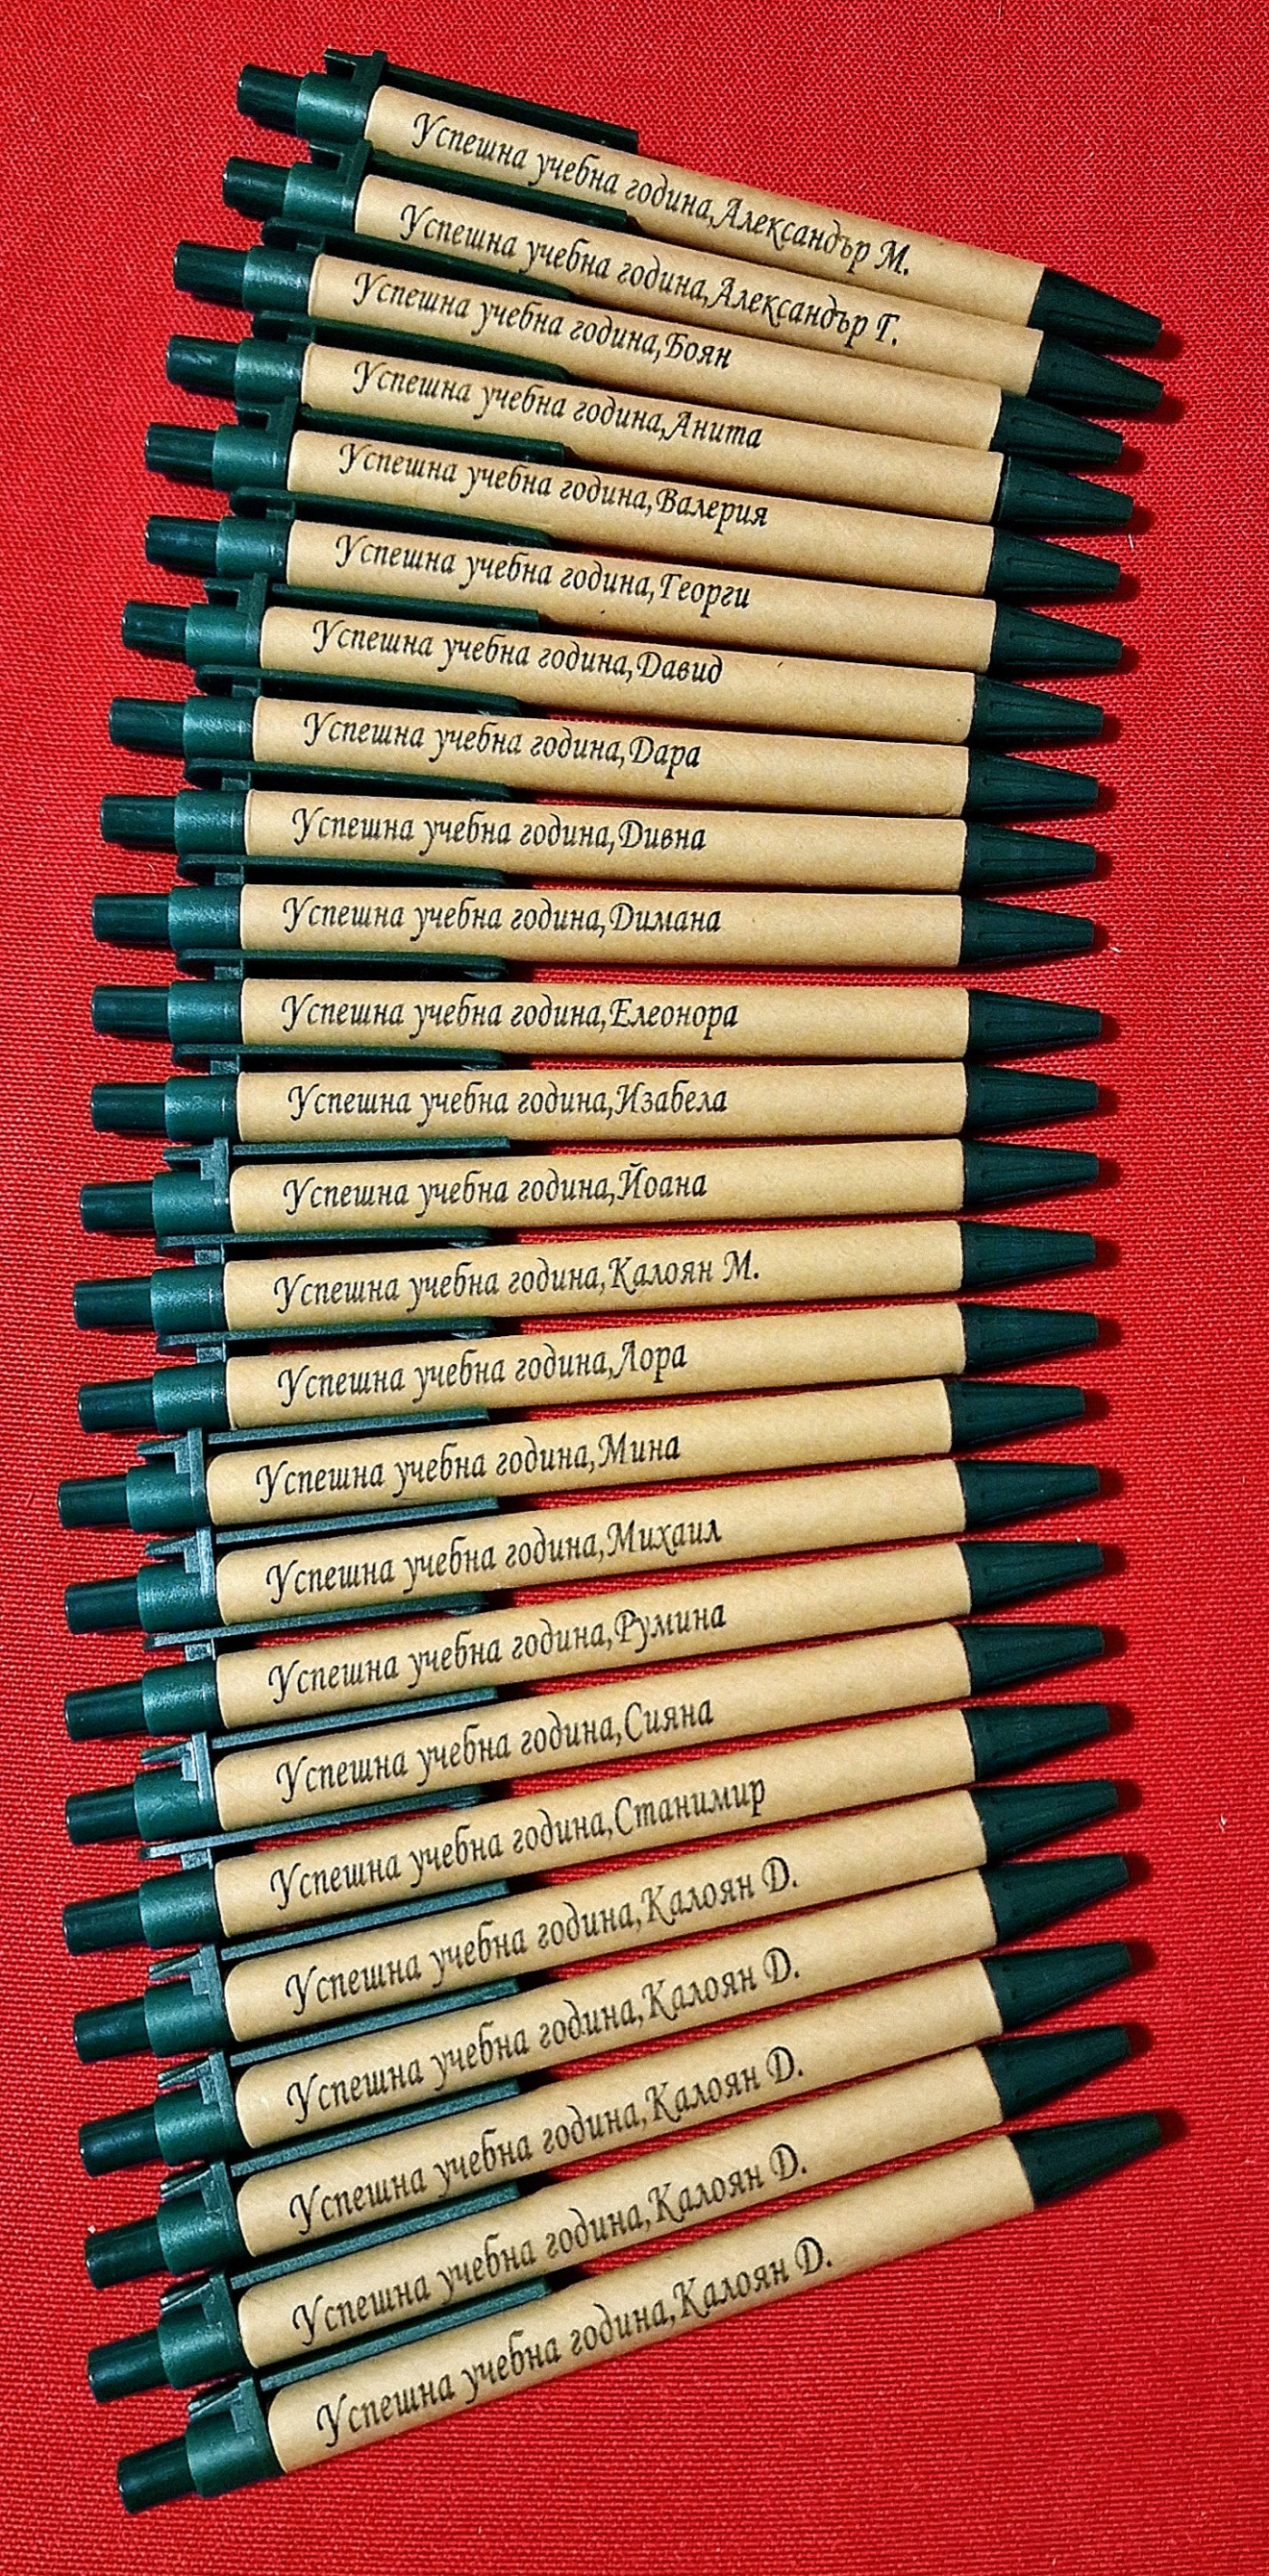 Успешна учебна година,Александър М.
Успешна учебна година,Александър Г.
Успешна учебна година,Боян
Успешна учебна година,Анита
Успешна учебна година,Валерия
Успешна учебна година,Георги
Успешна учебна година,Давид
Успешна учебна година,Дара
Успешна учебна година,Дивна
Успешна учебна година,Димана
Успешна учебна година,Елеонора
Успешна учебна година,Изабела
Успешна учебна година,Йоана
Успешна учебна година,Калоян М.
Успешна учебна година,Лора
Успешна учебна година,Мина
Успешна учебна година,Михаил
Успешна учебна година,Румина
Успешна учебна година,Сияна
Успешна учебна година,Станимир
Успешна учебна година,Калоян D.
Успешна учебна година,Калоян D.
Успешна учебна година,Калоян D.
Успешна учебна година,Калоян D.
Успешна учебна година,Калоян D.